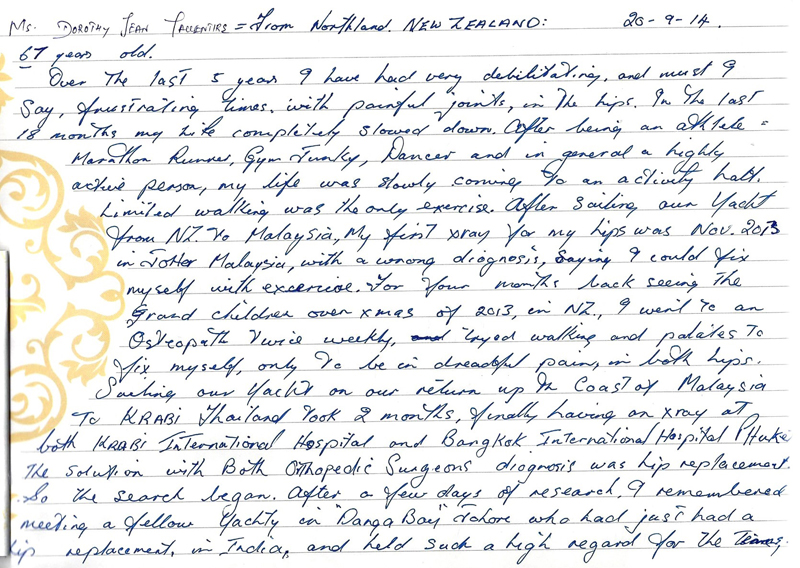 Ms. DOROTHY JEAN TALLENTIRS = From Northland. NEW ZEALAND: 20-9-14.
67 years old.
Over the last 5 years I have had very debilitating, and must I
say, frustrating times. with painful joints, in the hips. In the last
18 months my life completely slowed down. After being an athlete =
Marathon Runner, Gym Junky, Dancer and in general a highly
active person, my life was slowly coming to an activity halt.
Limited walking was the only exercise. After Sailing our Yacht
from NZ. to Malaysia, My first xray for my hips was Nov. 2013
in Johor Malaysia, with a wrong diognosis, saying I could fix
myself with excercise. For four months back seeing the
Grand children over xmas of 2013, in NZ., I went to an
Osteopath twice weekly, tryed walking and palates to
fix myself, only to be in dreadful pain, in both hips.
Sailing our Yacht on our return up the Coast of Malaysia
To KRABI Thailand took 2 months, finally having an xray at
both KRABI International Hospital and Bangkok International Hospital Phuke
The solution with Both Othopedic Surgeons diagnosis was hip replacement.
So the search began. After a few days of research, I remembered
meeting a fellow Yachty in "Danga Bay" Johore who had just had a
hip replacement, in India, and held such a high regard for the